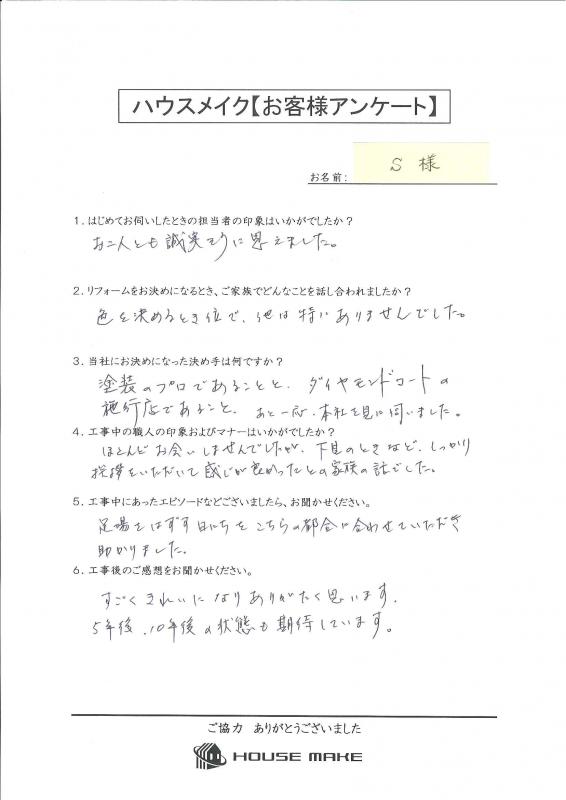 ハウスメイク【お客様アンケート】
お名前: S 様
1．はじめてお伺いしたときの担当者の印象はいかがでしたか？
お二人とも誠実そうに思えました。
2．リフォームをお決めになるとき、ご家族でどんなことを話し合われましたか？
色を決めるとき位で、他は特にありませんでした。
3．当社にお決めになった決め手は何ですか？
塗装のプロであることと、ダイヤモンドコートの
施行店であること、あと一応、本社を見に伺いました。
4．工事中の職人の印象およびマナーはいかがでしたか？
ほとんどお会いしませんでしたが、下見のときなど、しっかり
挨拶をいただいて感じが良かったとの家族の話でした。
5．工事中にあったエピソードなどございましたら、お聞かせください。
足場をはずす日にちをこちらの都合に合わせていただき
助かりました。
6．工事後のご感想をお聞かせください。
すごくきれいになりありがたく思います。
5年後、10年後の状態も期待しています。
ご協力 ありがとうございました
HOUSE MAKE